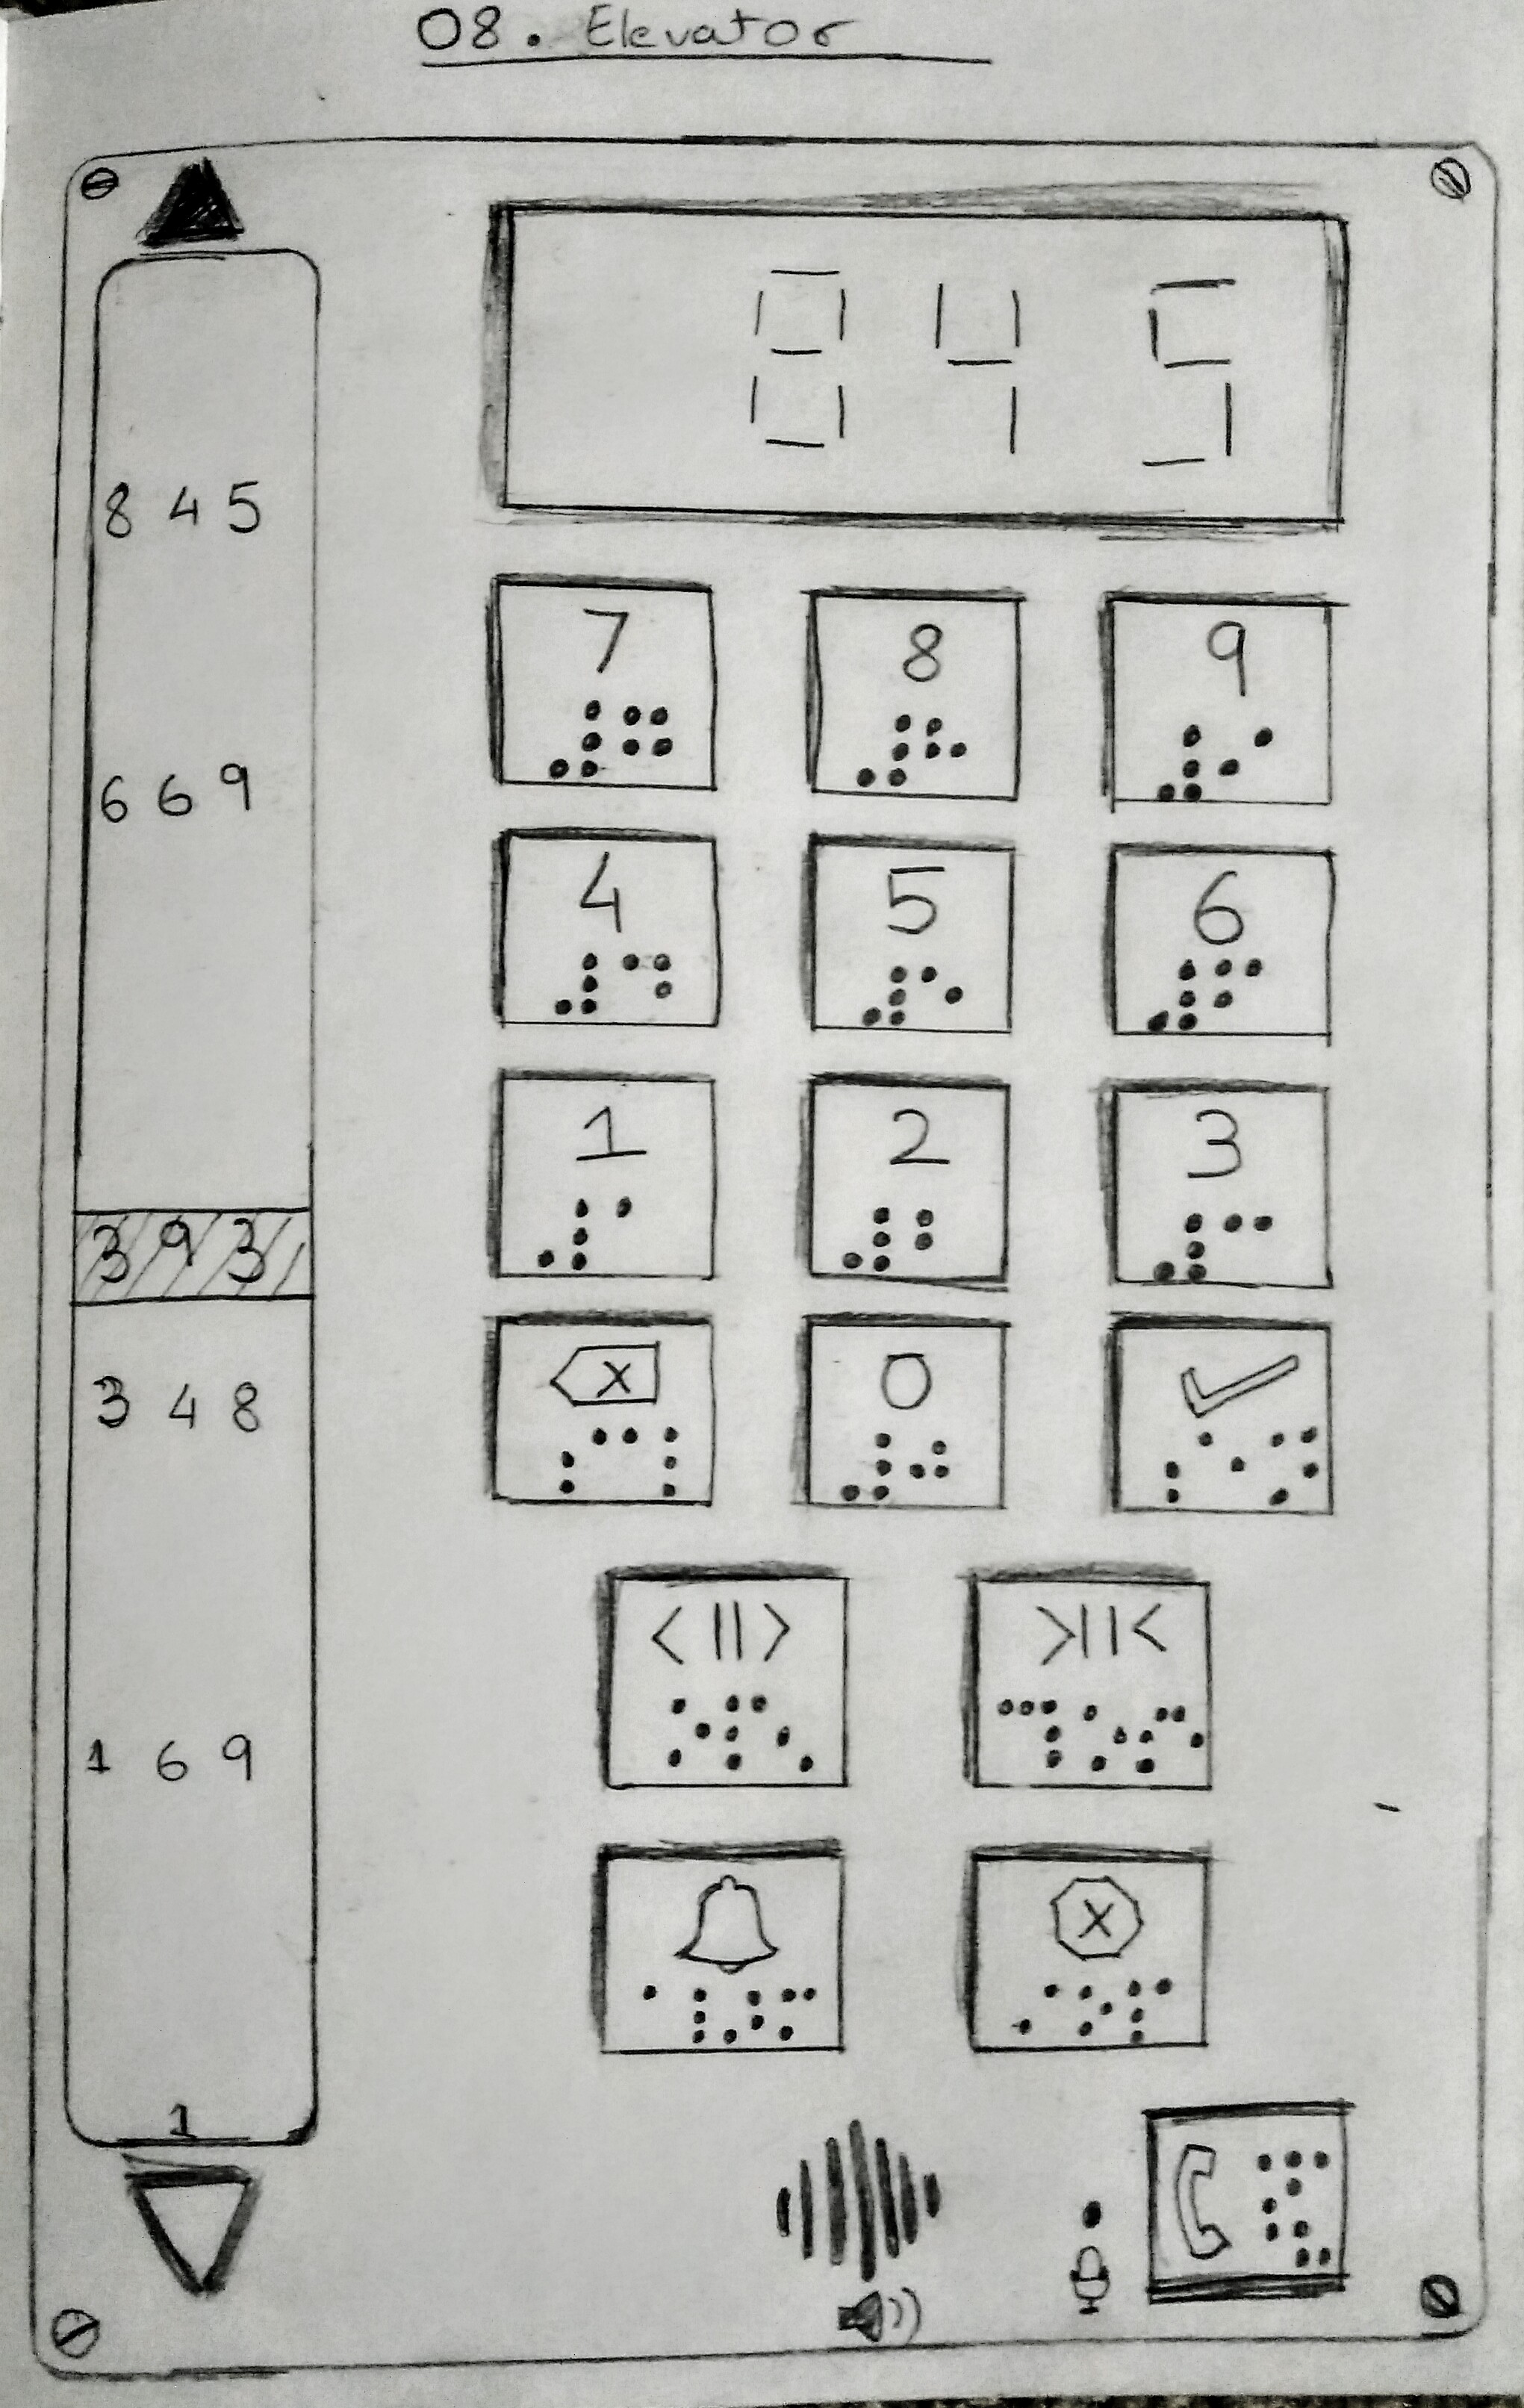 08. Elevator
845
669
393
348
169
1
845
7 8 9
4 5 6
1 2 3
X 0
<||> >||<
X